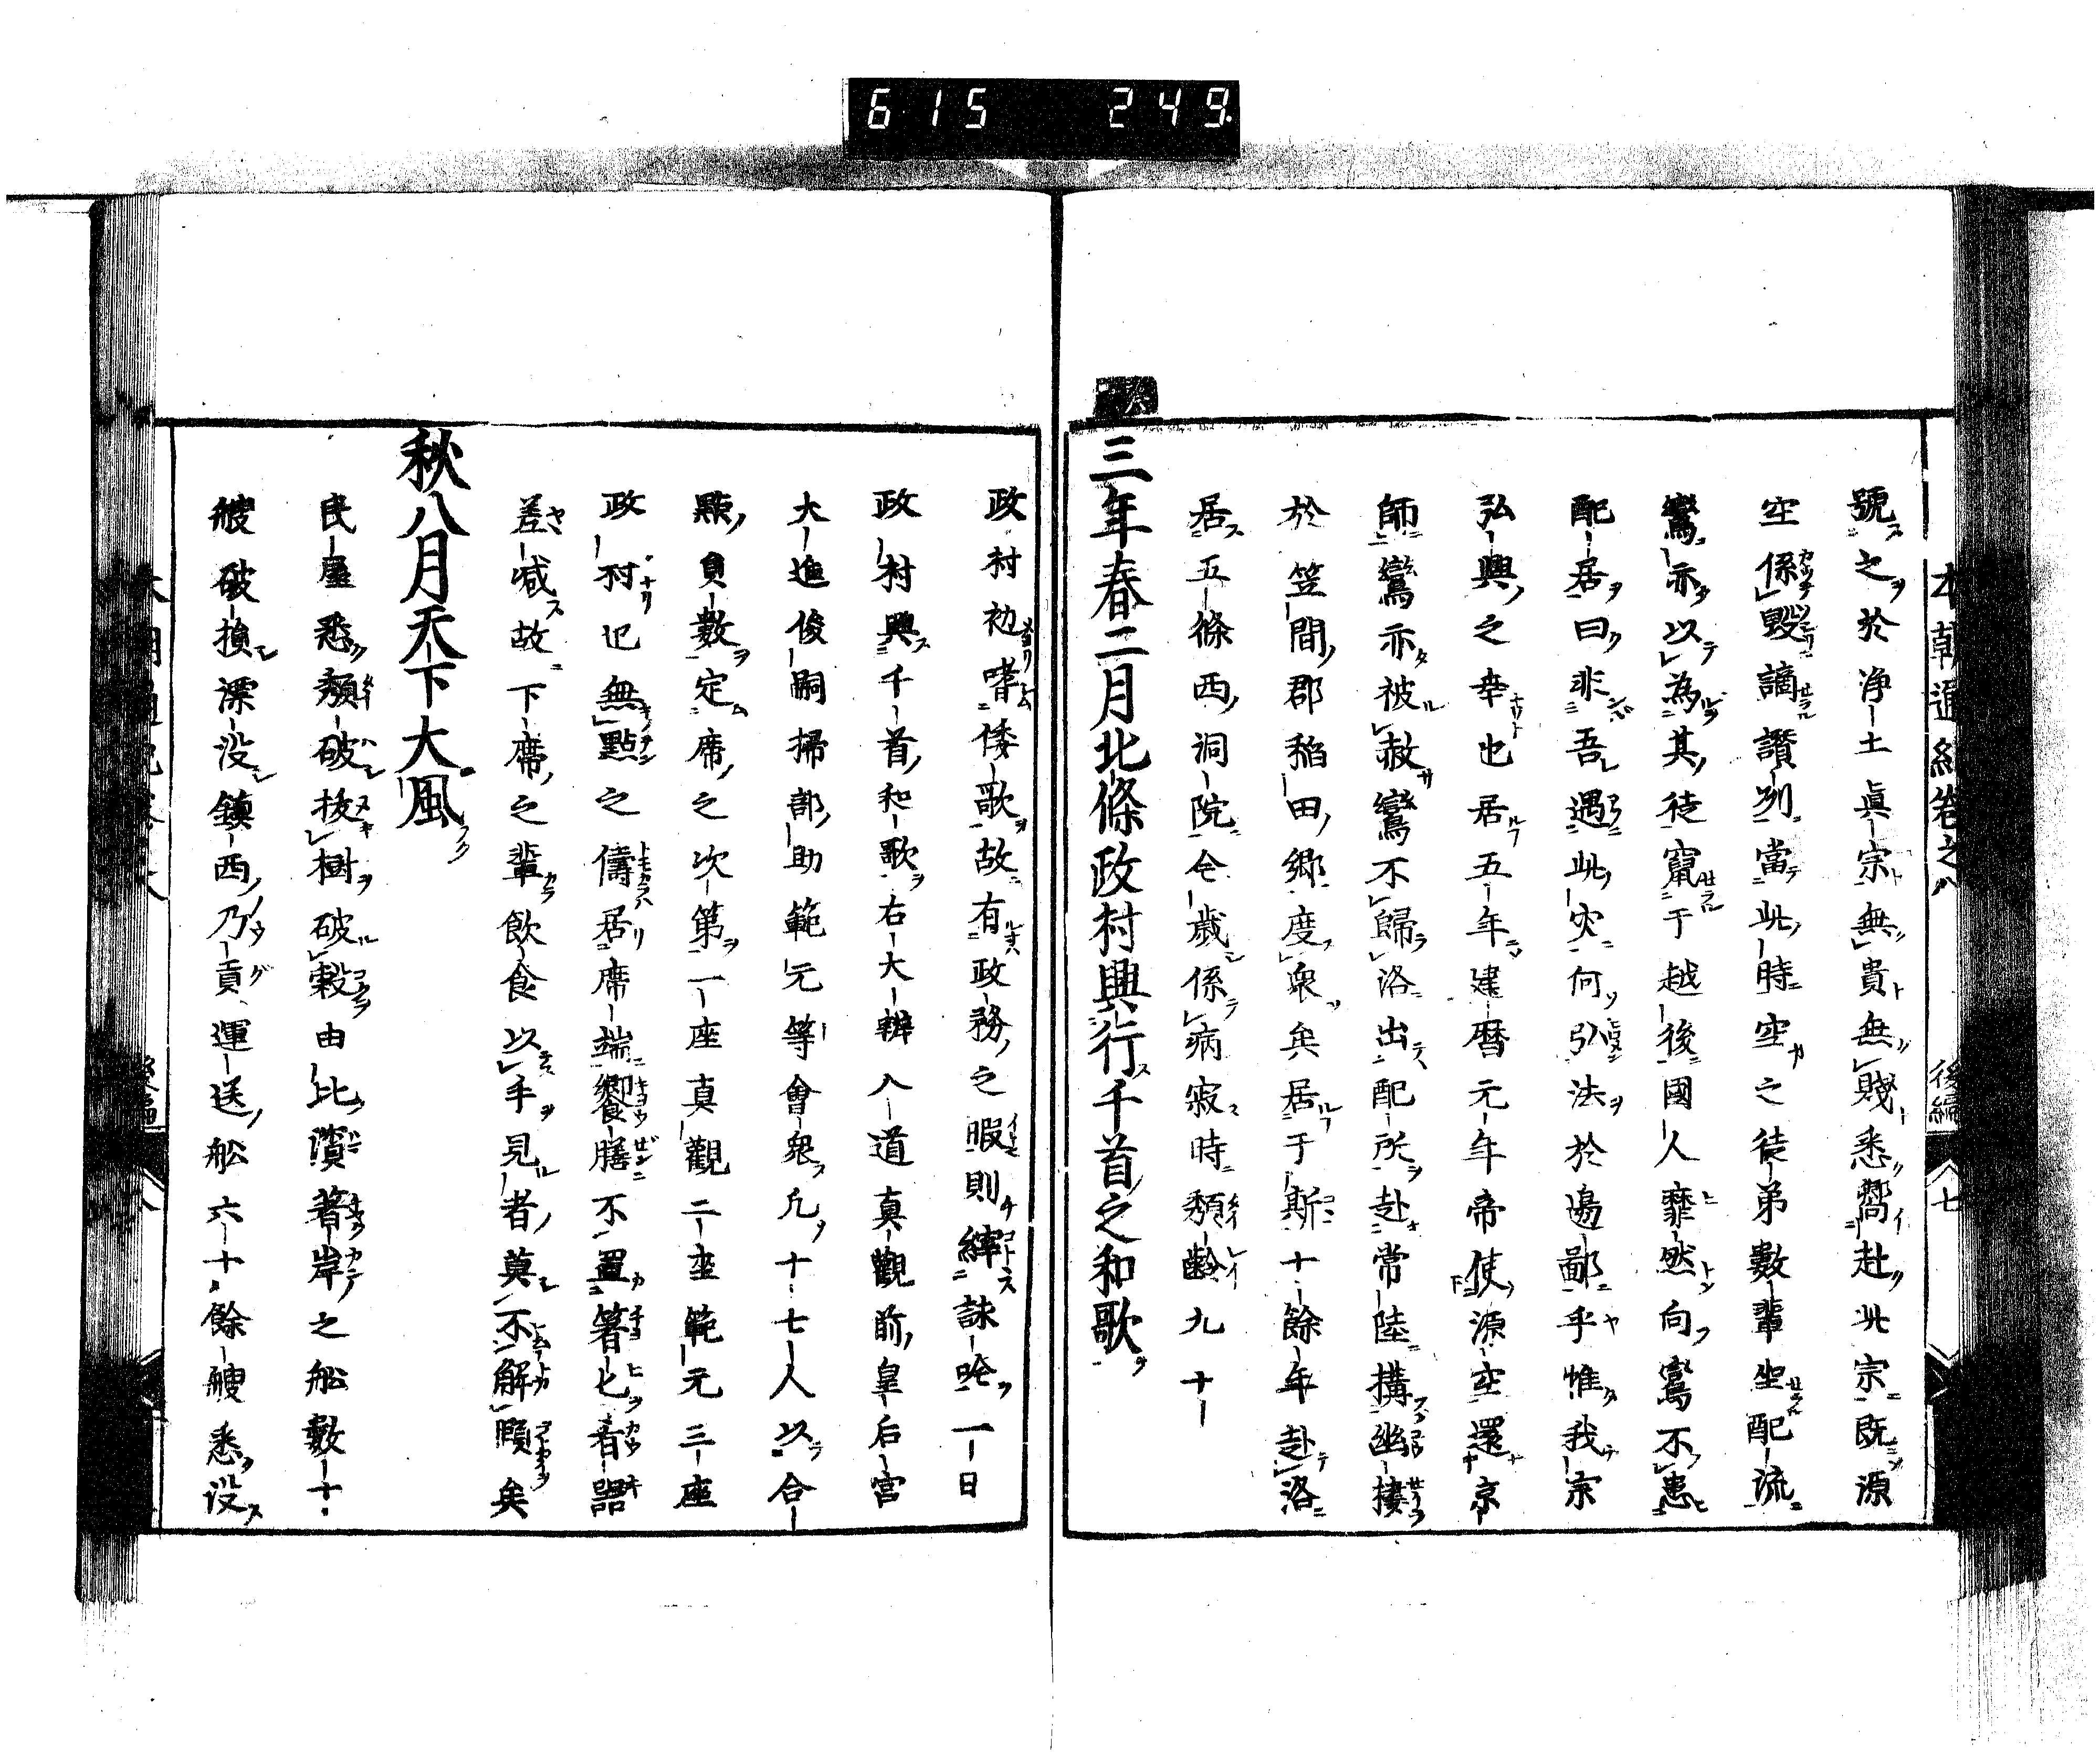 615 249
本朝通紀卷之八 後編 七
號之於淨土眞宗無貴無賤悉嚮赴此宗既源
空係毀謫讚州當此時空之徒弟數輩坐配流
鸞亦以為其徒竄于越後國人靡然向鸞不患
配居曰非吾遇此灾何引法於邊鄙乎惟我宗
弘興之幸也居五年建暦元年帝使源空還京
師鸞亦被赦鸞不歸洛出配所赴常陸構幽棲
於笠間郡稲田郷度衆矣居于斯十餘年赴洛
居五條西洞院今歳係病寂時頽齡九十
三年春二月北條政村興行千首之和歌
政村初嗜倭歌故有政務之暇則縡詠吟一日
政村興千首和歌右大辨入道真觀前皇后宮
大進俊嗣掃部助範元等會衆凡十七人以合
點負數定席之次第一座真觀二座範元三座
政村也無點之儔居席端饗膳不置箸匕着詔
差减故下席之輩飲食以手見者莫不解頤矣
秋八月天下大風
民屋悉頽破拔樹破穀由比濱著岸之船數十
艘破損漂没鎮西乃貢運送船六十餘艘悉没